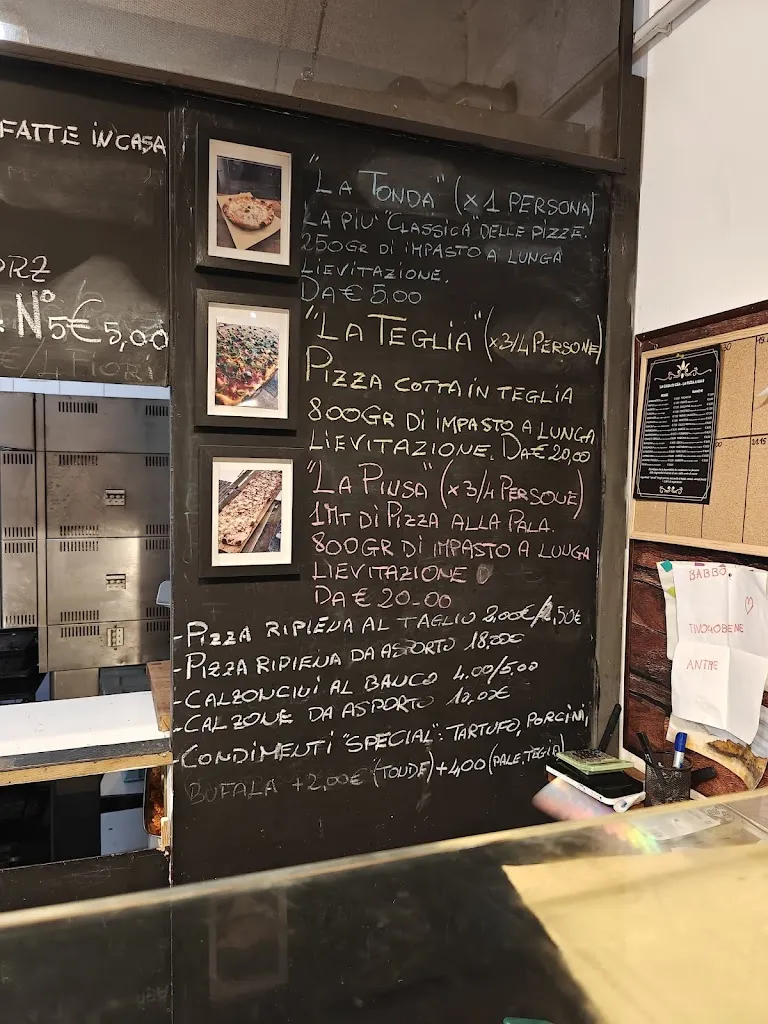 FATTE IN CASA
ORZ
N° 5 € 5,00
€/4 FIORI
"LA TONDA" (x 1 PERSONA)
LA PIU' "CLASSICA" DELLE PIZZE.
250GR DI IMPASTO A LUNGA
LIEVITAZIONE.
DA € 5,00
"LA TEGLIA" (x3/4 PERSONE)
PIZZA COTTA IN TEGLIA
800GR DI IMPASTO A LUNGA
LIEVITAZIONE. DA € 20,00
"LA PINSA" (x 3/4 PERSONE)
1MT DI PIZZA ALLA PALA.
800GR DI IMPASTO A LUNGA
LIEVITAZIONE
DA € 20.00
- PIZZA RIPIENA AL TAGLIO 2,00€/2,50€
- PIZZA RIPIENA DA ASPORTO 18,00€
- CALZONCINI AL BANCO 4.00/5,00
- CALZONE DA ASPORTO
- CONDIMENTI "SPECIAL": TARTUFO, PORCINI,
BUFALA +2,00€ (TONDE) +4,00 (PALE, TEGLIA)
BABBO
TIVOGIOBENE